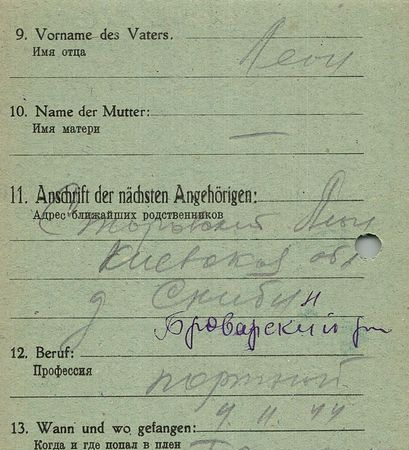 9. Vorname des Vaters.
Имя отца
Леон
10. Name der Mutter:
Имя матери
—
11. Anschrift der nächsten Angehörigen:
Адрес ближайших родственников
Леон
Киевская обл
д Скибин
Броварский
12. Beruf:
Профессия
портной
13. Wann und wo gefangen:
Когда и где попал в плен